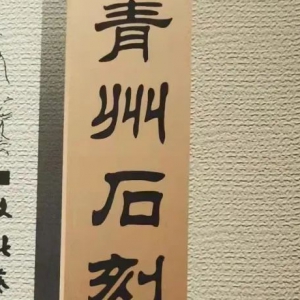 青州石刻